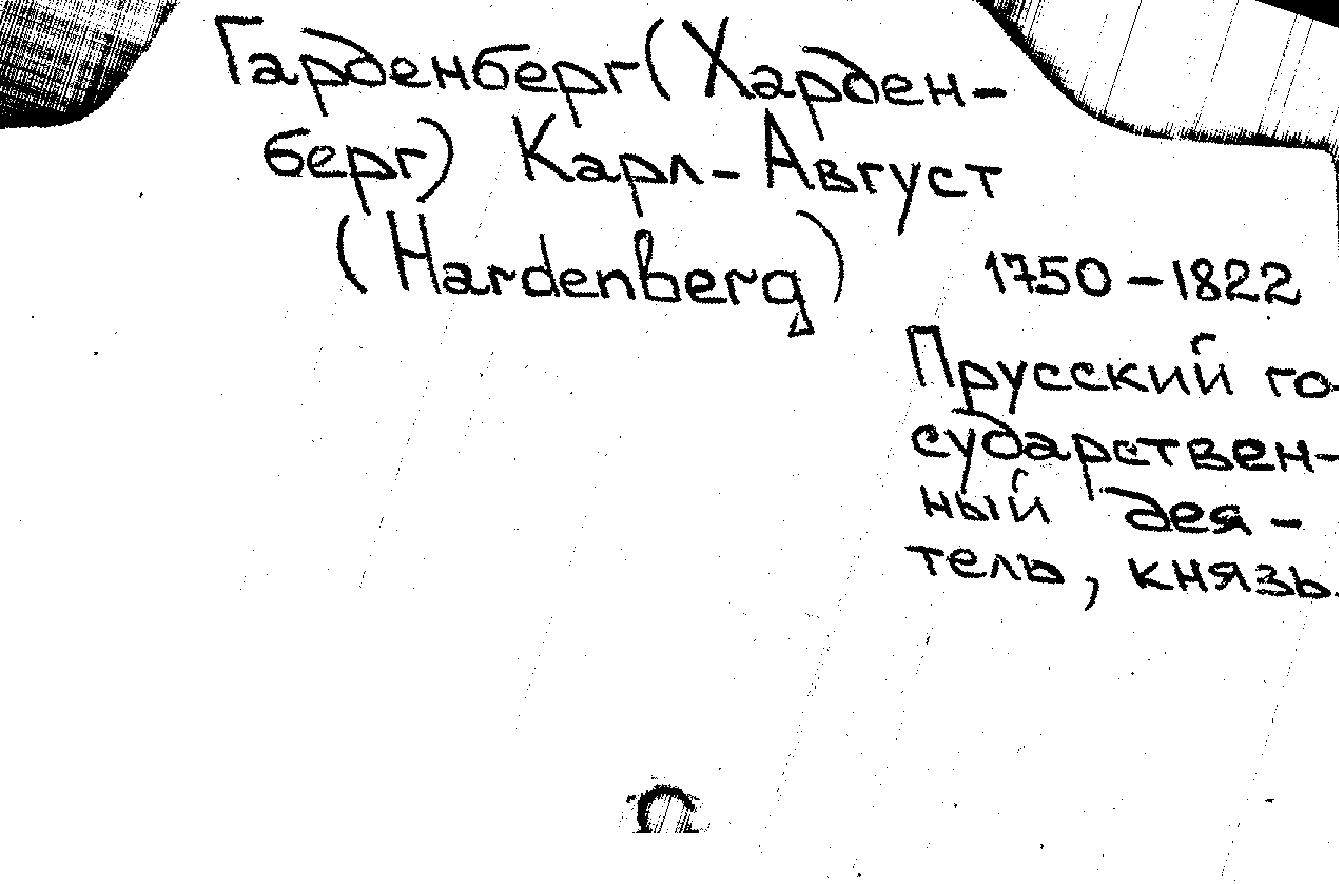 Гарденберг (Харден-
берг) Карл-Август
(Hardenberg)
1750-1822
Прусский го-
сударствен-
ный дея-
тель, князь.